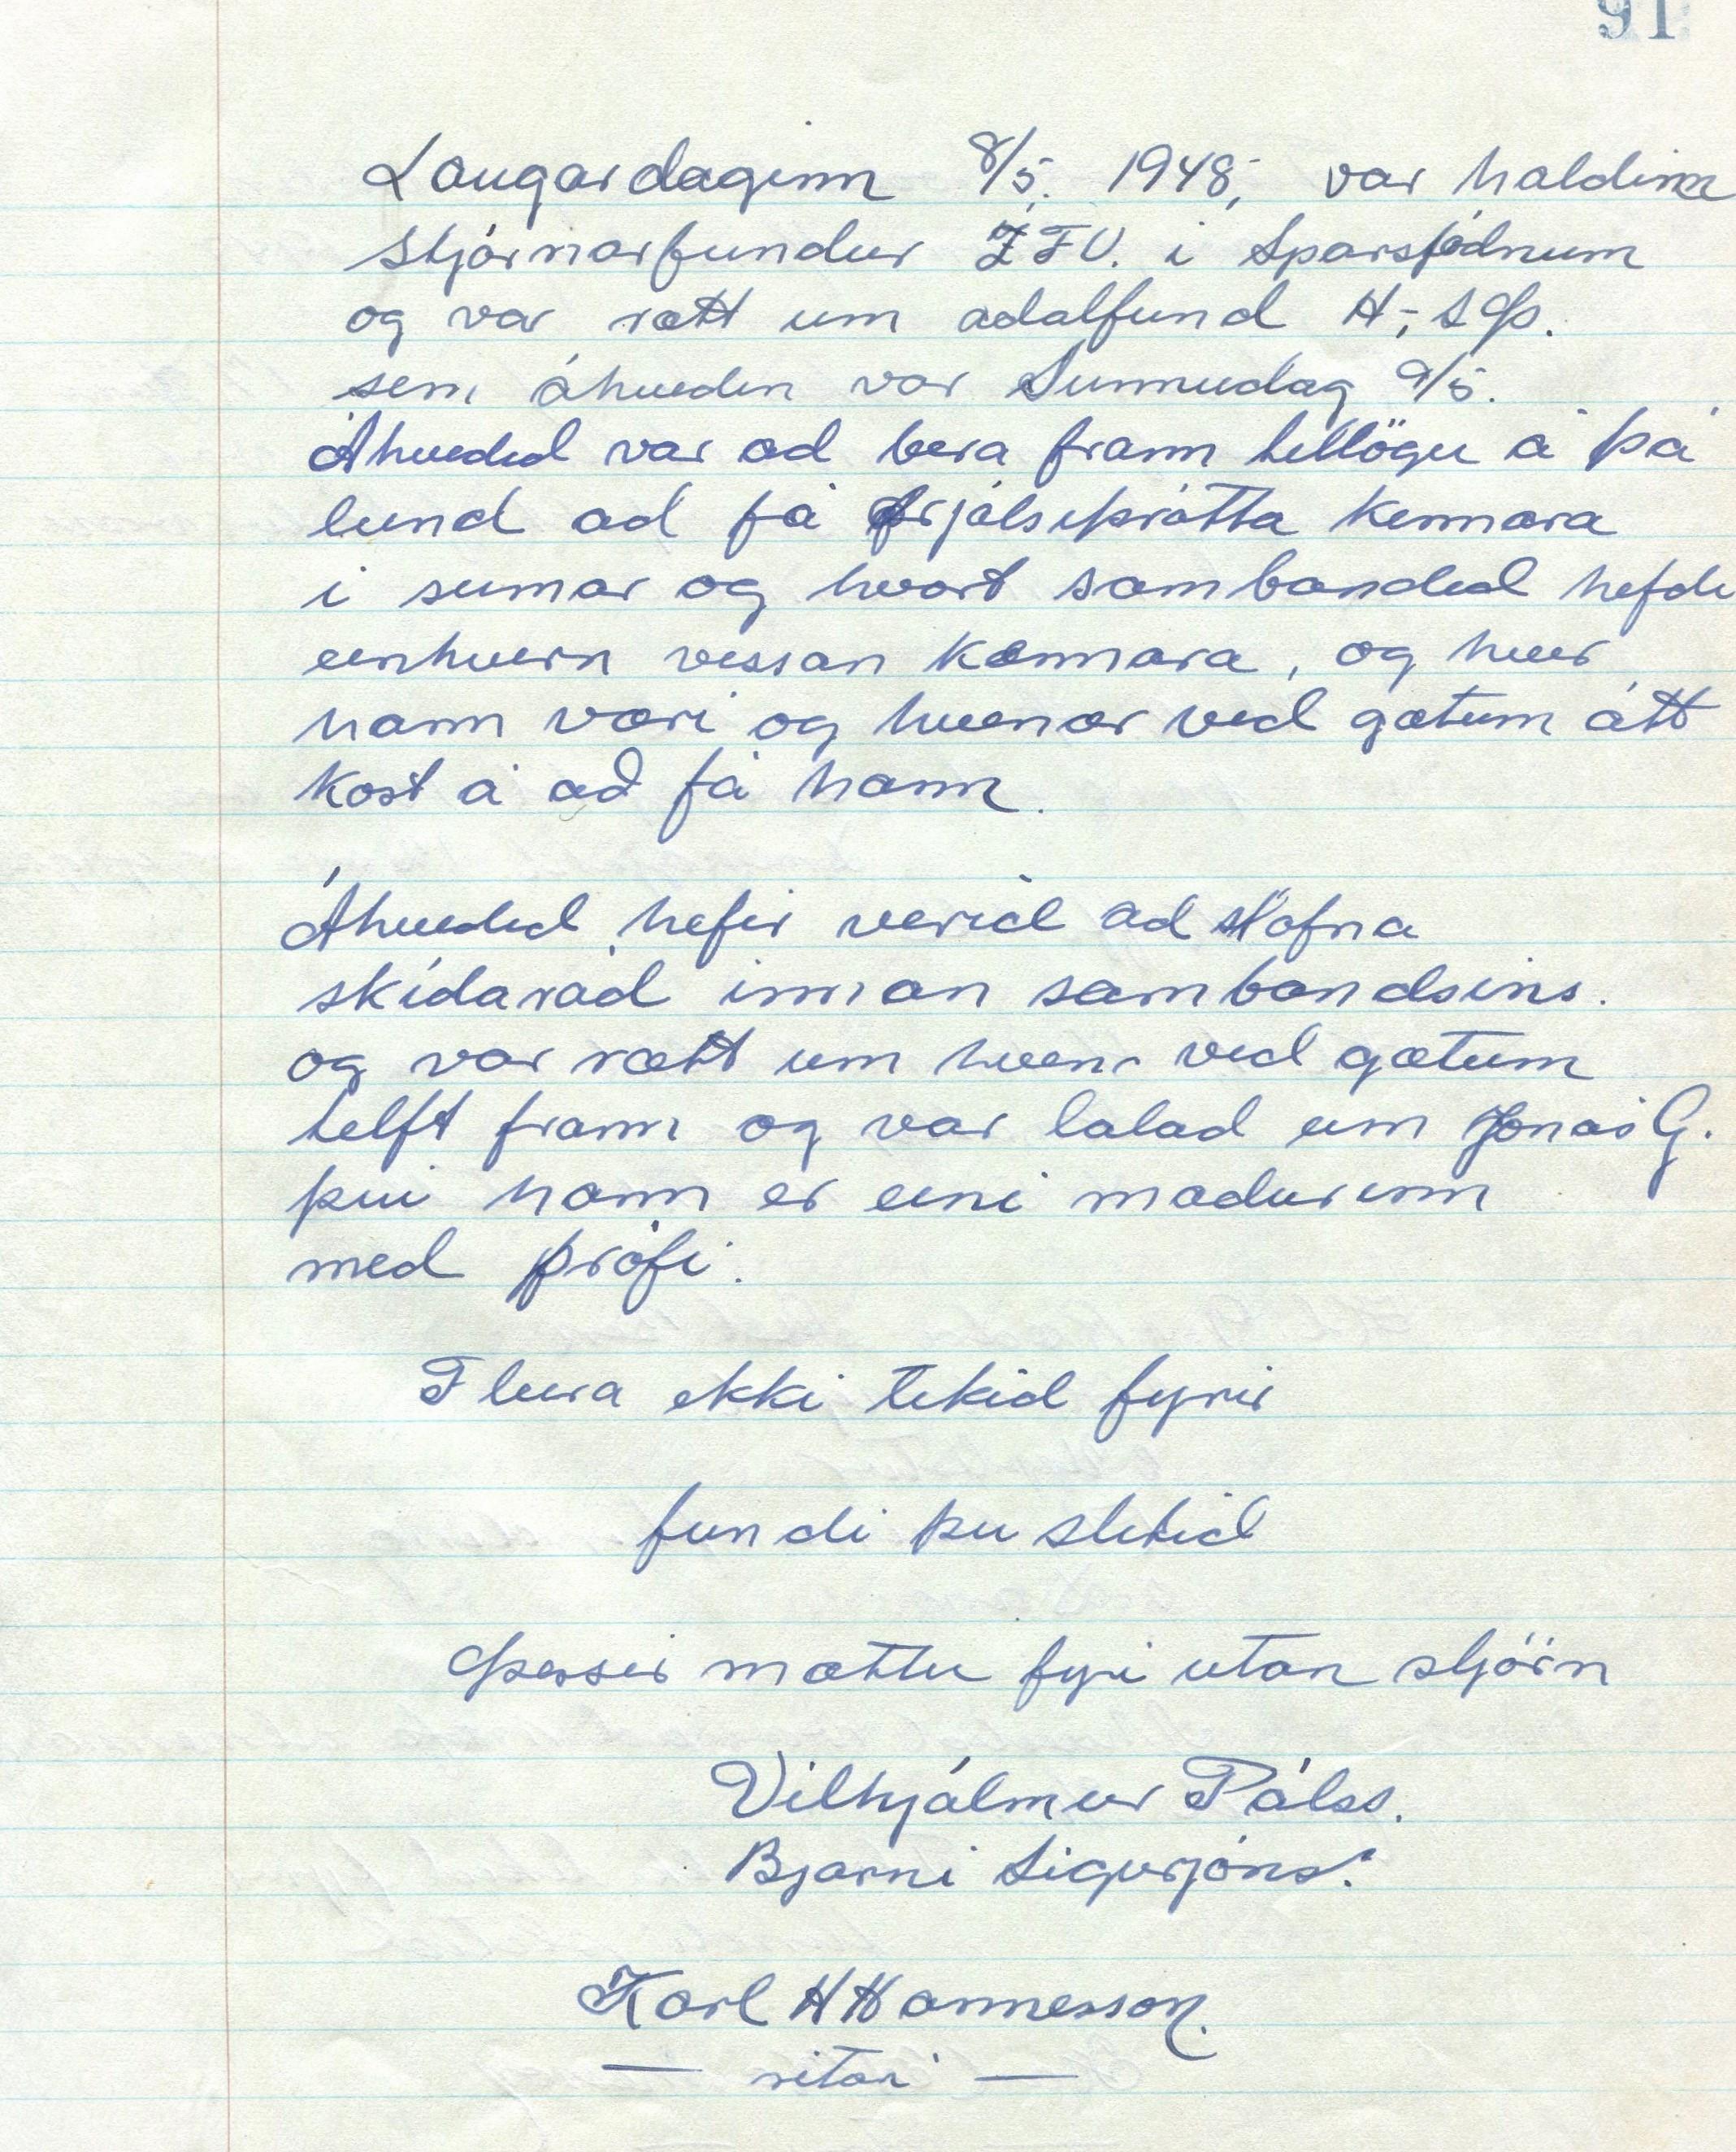 91
Laugardaginn 8/5. 1948, var haldinn
stjórnarfundur ÍFV. í Sparisjódnum
og var rætt um adalfund H.S.Þ.
sem áhveden var Sunnudag 9/5.
Áhvedid var ad bera fram tillögu á þá
lund ad fá frjálsíþrótta kennara
í sumar og hvort sambandid hefdi
einhvern vissan kennara, og hver
hann væri og hvenær vid gætum átt
kost á að fá hann.
Áhvedid hefir verid ad stofna
skídarád innan sambandsins.
og var rætt um hvern vid gætum
telft fram og var talad um Jónas G.
því hann er eini madurinn
med prófi.
Fleira ekki tekid fyrir
fundi þvi slitid
Þessir mættu fyri utan stjórn
Vilhjálmur Pálss.
Bjarni Sigurjóns.
Karl H Hannesson.
— ritari —